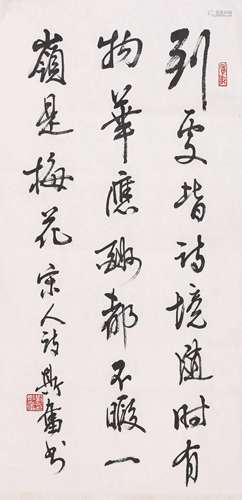 到處皆詩境隨時有
物華應酬都不暇一
嶺是梅花宋人詩斯奮書